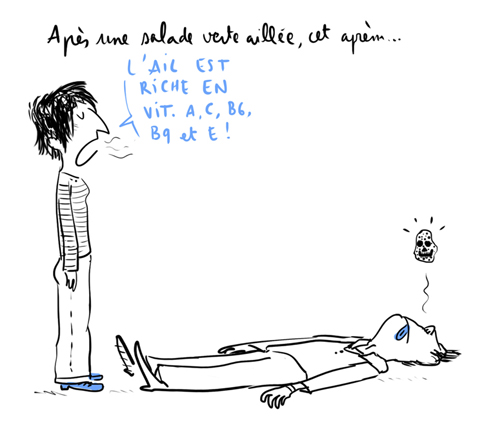 Après une salade verte aillée, cet aprèm...
L'AIL EST
RICHE EN
VIT. A, C, B6,
B9 et E !